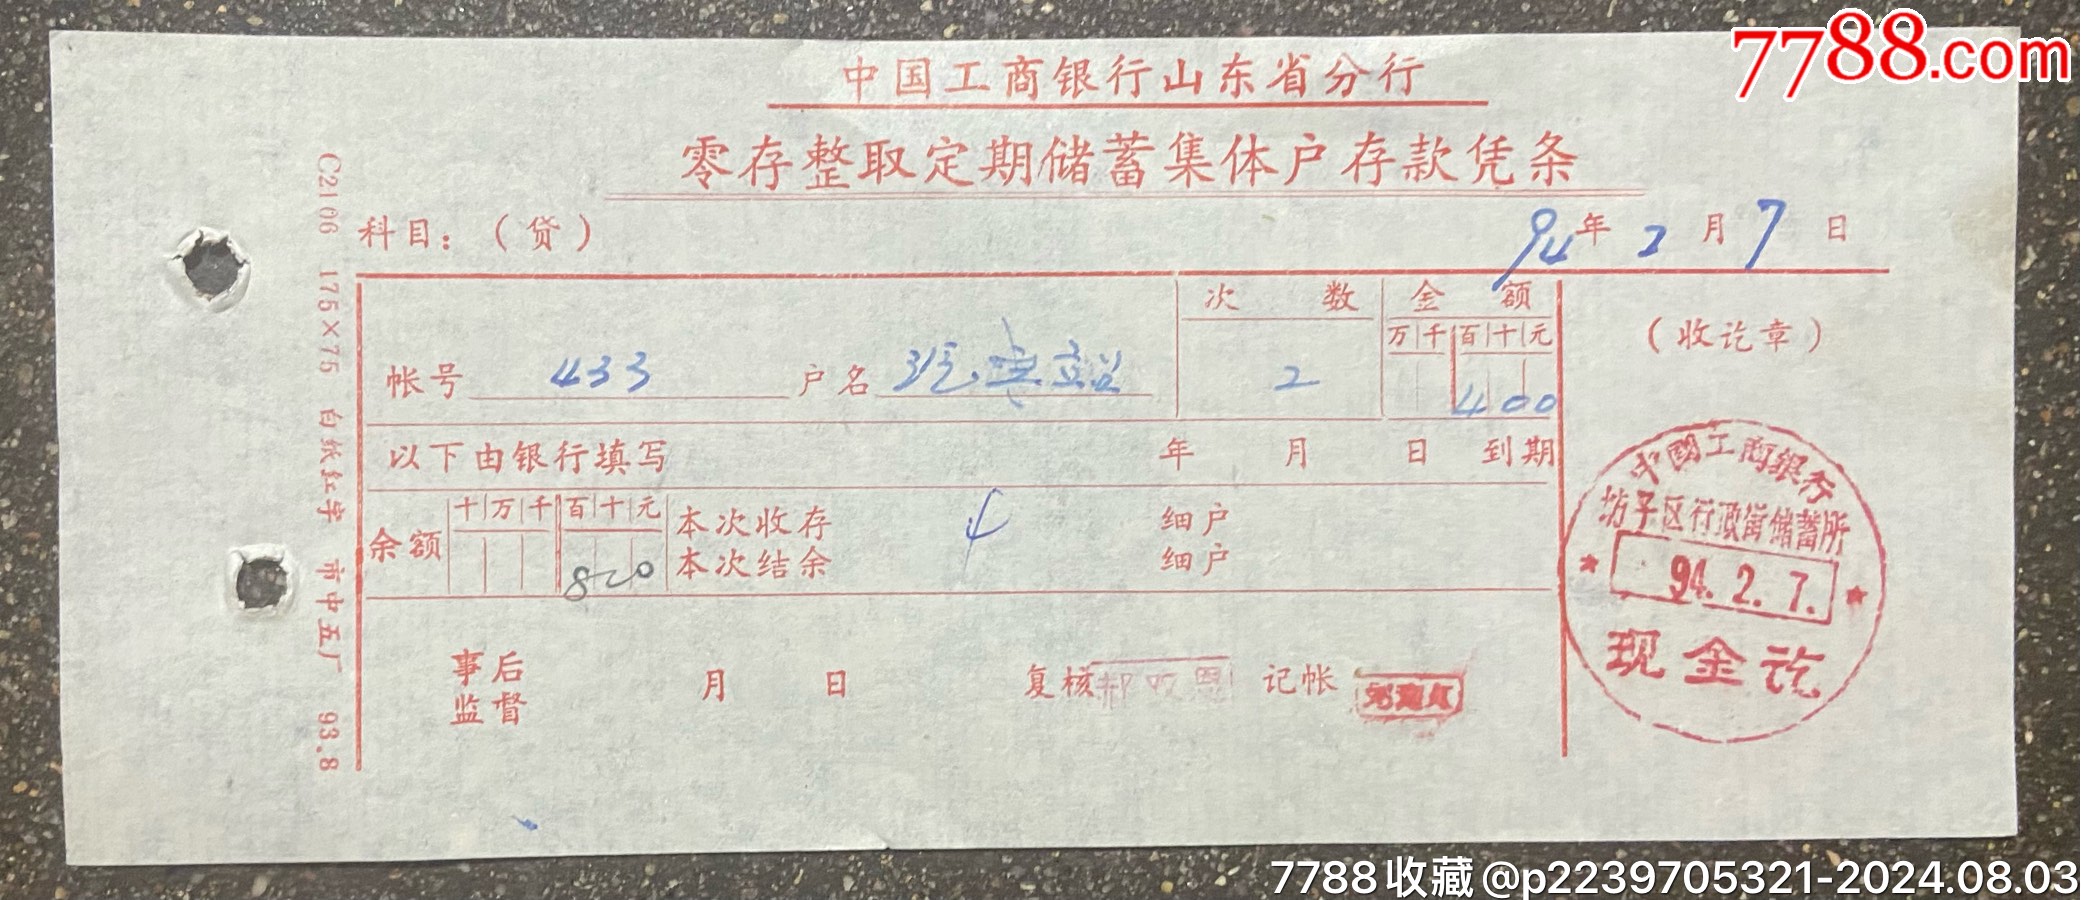 7788.com
中国工商银行山东省分行
零存整取定期储蓄集体户存款凭条
科目：（贷） 94年2月7日
次数 金额
万千百十元
（收讫章）
帐号 433 户名 2 400
以下由银行填写 年 月 日 到期
余额 十万千百十元 820
本次收存 细户
本次结余 细户
事后监督 月 日 复核 记帐
中國工商銀行
坊子区行政街储蓄所
★ 94.2.7. ★
现金讫
C2106 175×75 白纸红字 市中五厂 93.8
7788收藏@p2239705321-2024.08.03